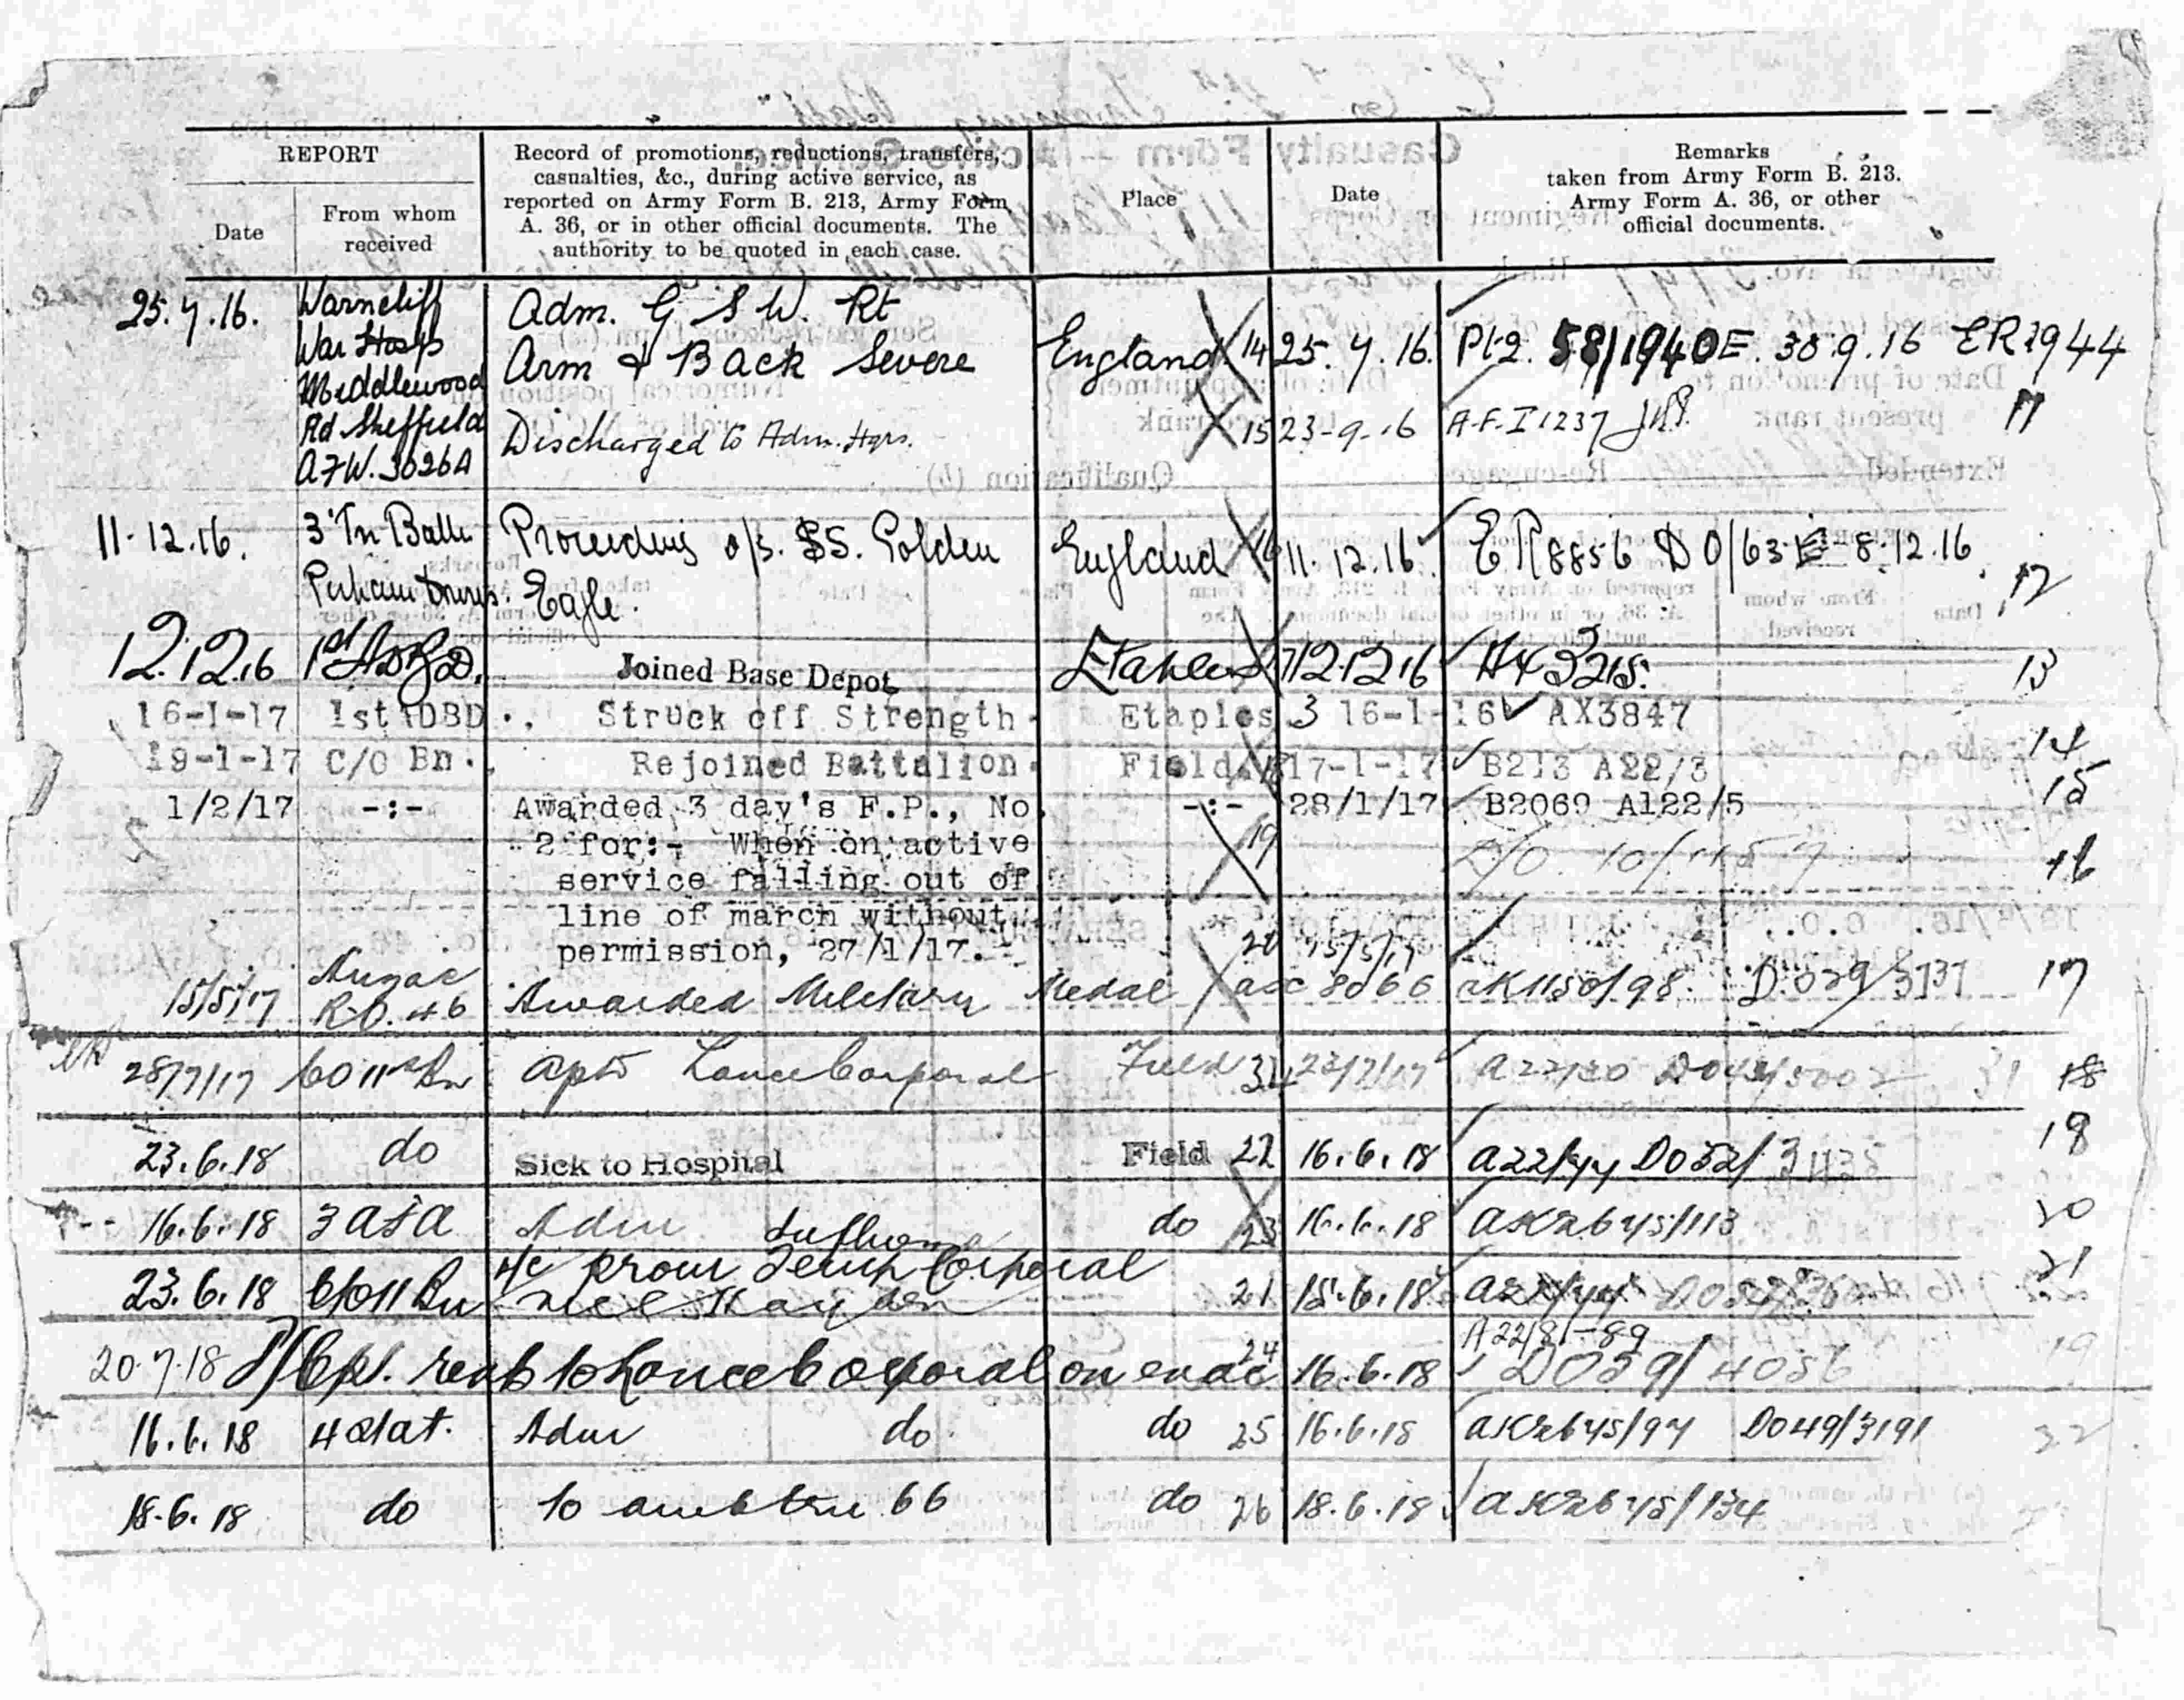 REPORT
Date
From whom
received
Record of promotions, reductions, transfers,
casualties, &c., during active service, as
reported on Army Form B. 213, Army Form
A. 36, or in other official documents. The
authority to be quoted in each case.
Place
Date
Remarks
taken from Army Form B. 213.
Army Form A. 36, or other
official documents.
25.7.16. Warncliff Adm. G S W. Rt
War Hosp Arm & Back Severe England 14 25.7.16. Pt 2. 58/1940E. 30.9.16 ER 2944
Middlewood
Rd Sheffield Discharged to Adm. Hqrs. 15 23-9-16 A.F.I 1237 11
A F W. 3026A
11.12.16. 3 Tn Battn Proceeding o/s. SS. Golden England 16 11.12.16. E R 8856 D O/63 E-8.12.16.
Perham Downs. Eagle. 12
12.12.16 1st A D B D. Joined Base Depot Etaples 17 12.12.16 13
16-1-17 1st ADBD., Struck off Strength. Etaples 3 16-1-16 AX3847
19-1-17 C/O Bn., Rejoined Battalion. Field. 18 17-1-17 B213 A22/3 14
1/2/17 -:- Awarded 3 day's F.P., No. -:- 28/1/17 B2069 A122/5 15
2 for:- When on active 19
service falling out of 16
line of march without
permission, 27/1/17. 20 15/5/17
15/5/17 Anzac R.O. 46 Awarded Military Medal 8066 AK1150/98. DO29/3131 17
28/7/17 CO 11th Bn aptd Lance Corporal Field 34 23/7/17 A22/30 31 18
23.6.18 do Sick to Hospital Field 22 16.6.18 A22/44 DO52/3435 19
16.6.18 3 A F A Adm Influenza do 23 16.6.18 AK2645/113 20
23.6.18 C/O 11 Bn Prom Temp Corporal 21 15.6.18 21
A22/81-89
20.7.18 T/Cpl. revts to Lance Corporal on evac 24 16.6.18 DO59/4056 19
16.6.18 4 Stat. Adm do do 25 16.6.18 AK2645/97 DO49/3191 22
18.6.18 do To amb trn 66 do 26 18.6.18 AK2645/134